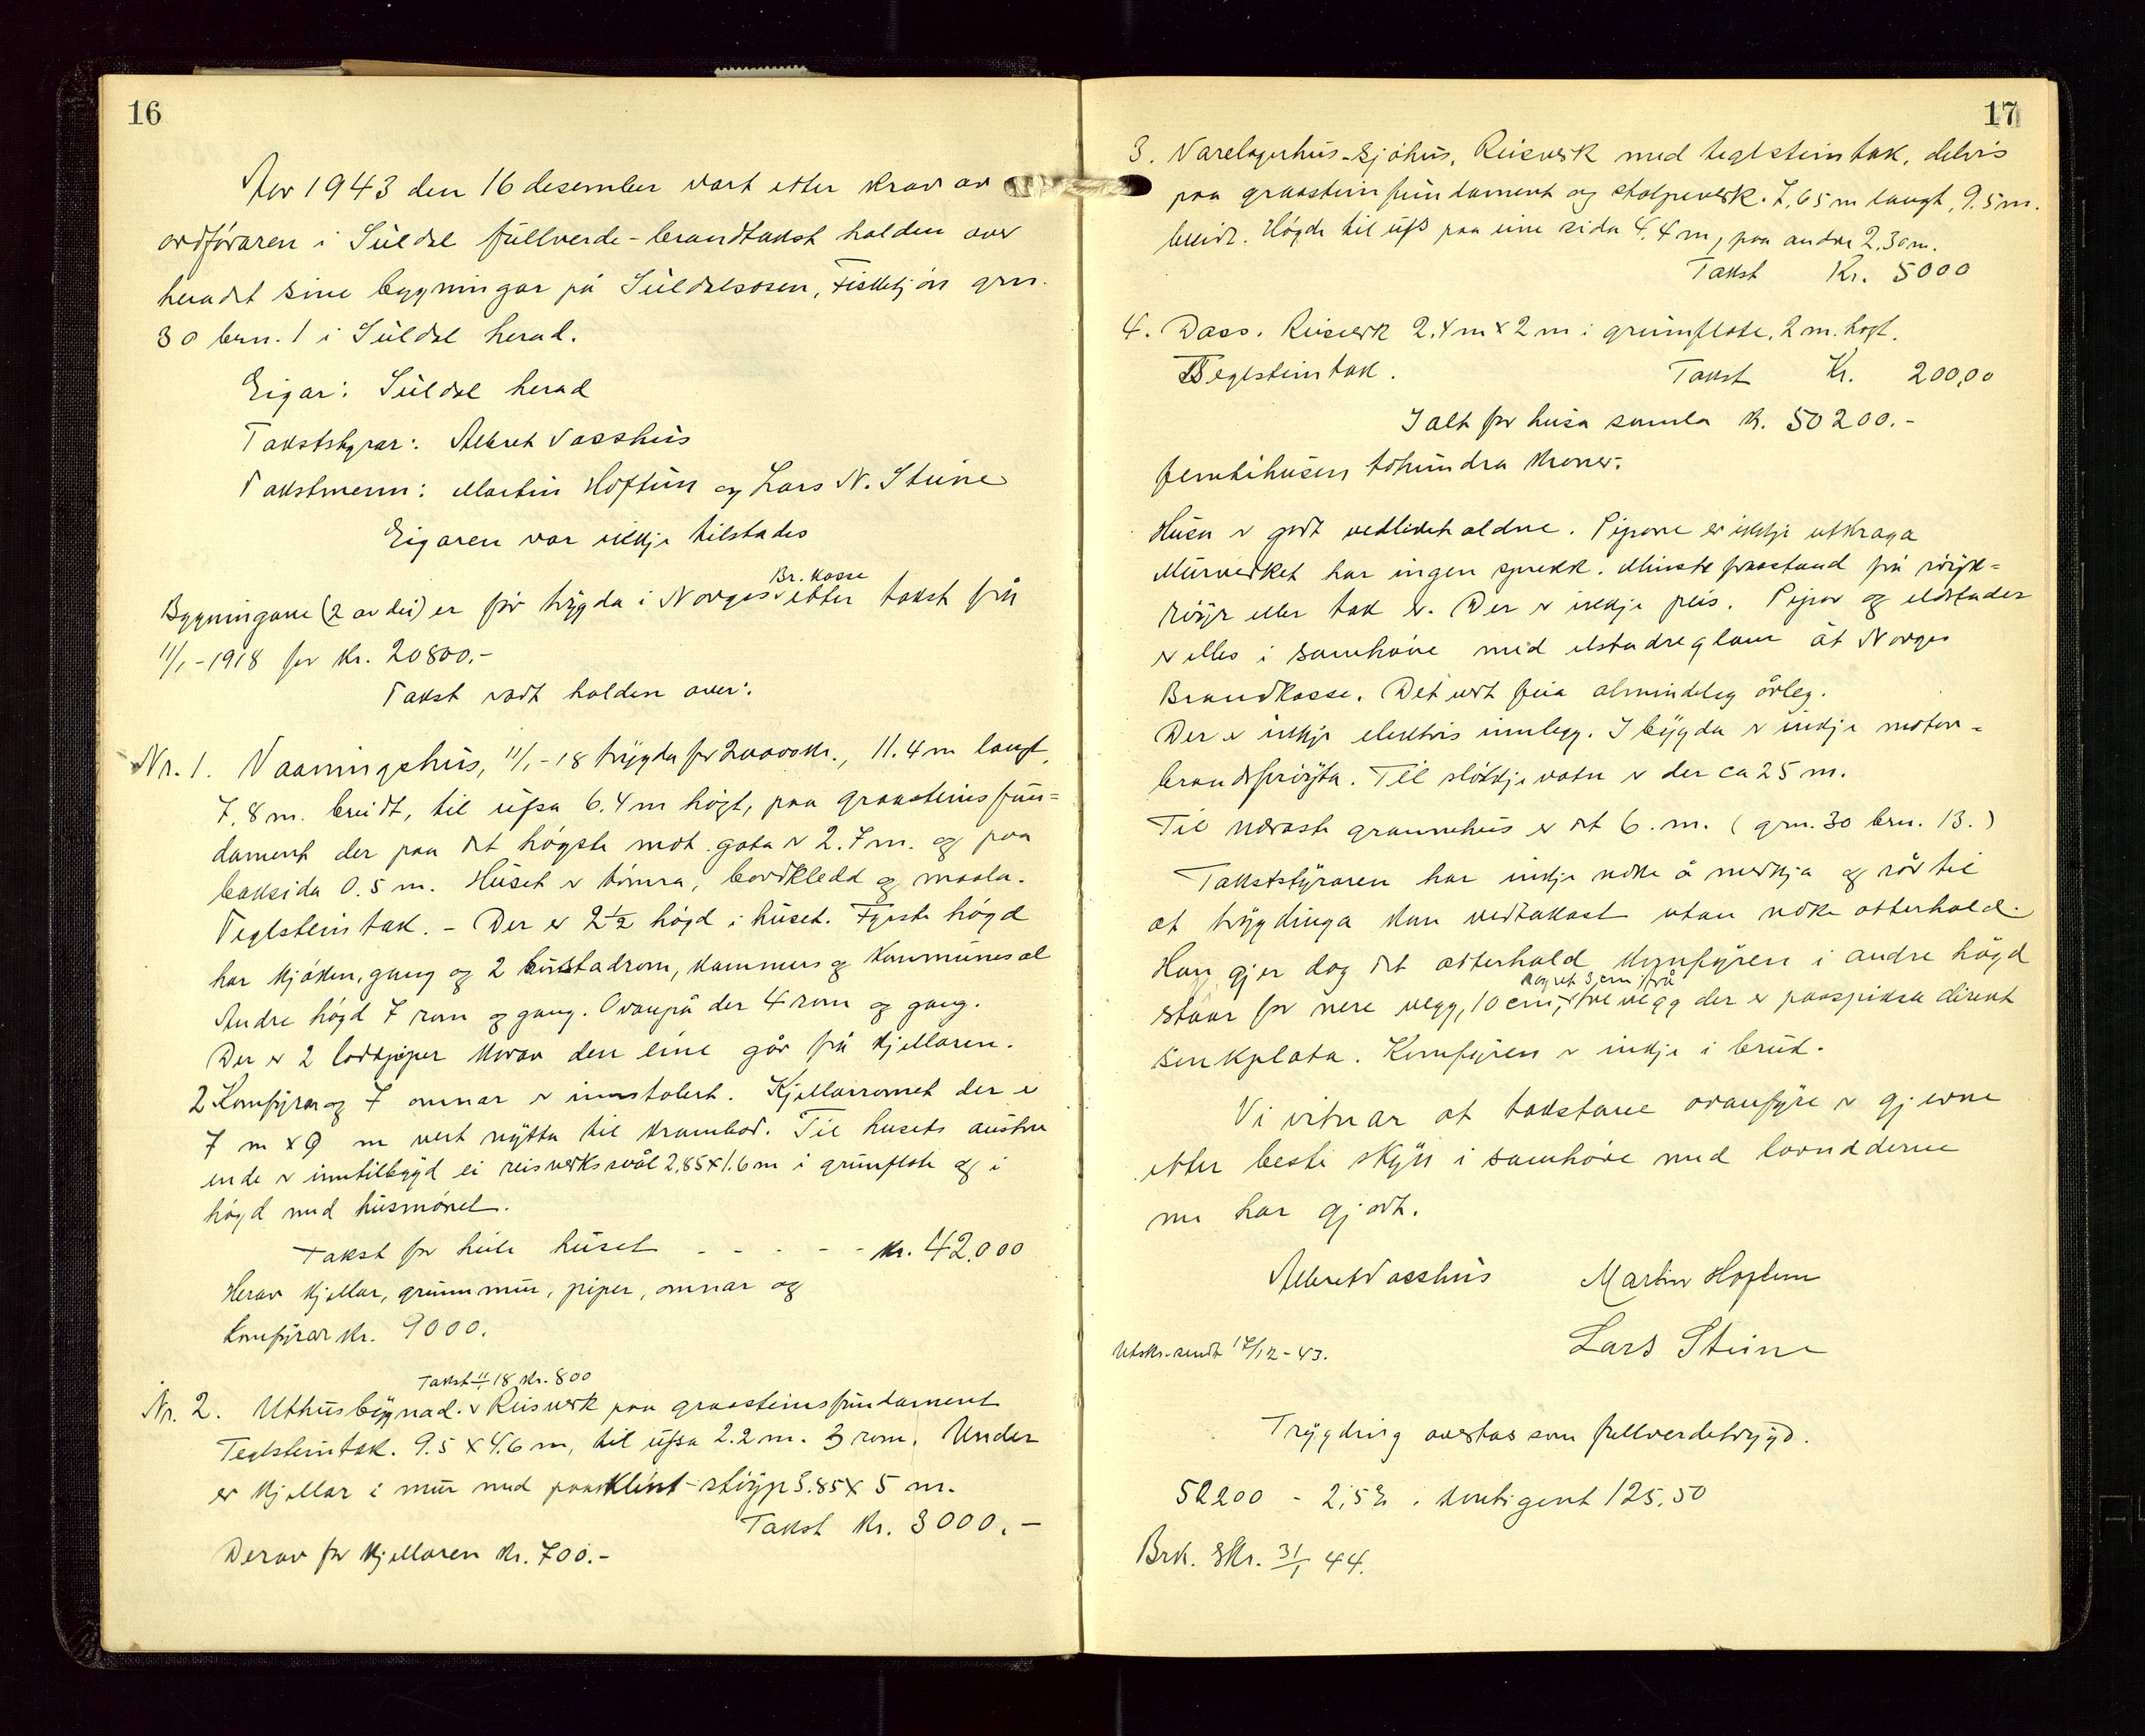 16
Aar 1943 den 16 desember vart etter krav av
ordføraren i Suldal fullverde-brandtakst halden over
heradet sine bygningar på Suldalsosen, Fiskekjøn grn.
30 brn. 1 i Suldal herad.
Eigar: Suldal herad
Takststyrar: Albret Vasshus
Takstmenn: Martin Hoftun og Lars N. Steine
Eigaren var ikkje tilstades
Br. kasse
Bygningane (2 av dei) er før trygda i Norges etter takst frå
11/1-1918 for Kr. 20800.-
Takst vart halden over:
Nr. 1. Vaaningshus, 11/1-18 trygda for 20000 kr., 11.4 m langt,
7,8 m. breidt, til ufsa 6.4 m högt, paa graasteinsfun=
dament der paa det högste mot gata er 2.7 m. og paa
baksida 0.5 m. Huset er tömra, bordkledd og maala.
Teglsteinstak. - Der er 2½ högd i huset. Fyrste högd
har kjöken, gang og 2 bustadrom, kammers og kommunesal
Andre högd 7 rom og gang. Ovanpå der 4 rom og gang.
Der er 2 lodpiper korav den eine går frå kjellaren.
2 Komfyrar og 7 omnar er innstalert. Kjellarromet der er
7 m x 9 m vert nytta til krambod. Til husets austre
ende er inntilbygd ei reisverkssvål 2,85x1.6 m i grunnflate og i
högd med husmönet.
Takst for heile huset - - - - - kr. 42.000
Herav kjellar, grunnmur, piper, omnar og
komfyrar kr. 9000.
Takst 11/1 18 kr. 800
Nr. 2. Uthusbygnad. Reisverk paa graasteinsfundament
Teglsteintak. 9.5 x 4.6 m, til ufsa 2.2 m. 3 rom. Under
er kjellar i mur med støyp 3.85 x 5 m.
Takst Kr. 3000.-
Derav for kjellaren Kr. 700.-
17
3. Varelagerhus - Sjöhus. Reisverk med teglsteintak, delvis
paa graasteinfundament og stolpeverk. 7,65 m langt, 9.5 m.
breidt. Högde til ufs paa eine sida 4,4 m, paa andre 2.30 m.
Takst Kr. 5000
4. Dass. Reisverk 2.4 m x 2 m i grunnflate. 2 m. högt.
Teglsteintak. Takst Kr. 200,00
I alt for husa samla kr. 50200.-
femtitusen tohundra kroner.
Husa er godt vedlikehaldne. Pipone er ikkje utkraga
Murverket har ingen sprekk. Minste fraastand frå röyk=
röyr eller tak er. Der er ikkje peis. Pipor og eldstader
er elles i samhöve med elstadreglane åt Norges
Brandkasse. Det vert feia almindeleg årleg.
Der er ikkje elektris innlegg. I bygda er inkje motor=
brandspröyta. Til slökkjevatn er der ca 25 m.
Til næraste grannehus er det 6. m. (grn. 30 brn. 13.)
Takststyraren har inkje noke å merkja og rår til
at trygdinga kan vedtakast utan noke atterhald.
Han gjer dog det atterhald komfyren i andre högd
Røyret 3 cm frå
staar for nere vegg, 10 cm, trevegg der er paaspikra direkt
sinkplata. Komfyren er inkje i bruk.
Vi vitnar at takstane ovanfyre er gjevne
etter beste skyn i samhöve med lovnaderne
me har gjort.
Albret Vasshus Martin Hoftun
Lars Steine
Utskr. sendt 17/12-43.
Trygding overtas som fullverdetrygd.
50200 - 2,5‰. kontigent 125.50
Brk. Skr. 31/1 44.